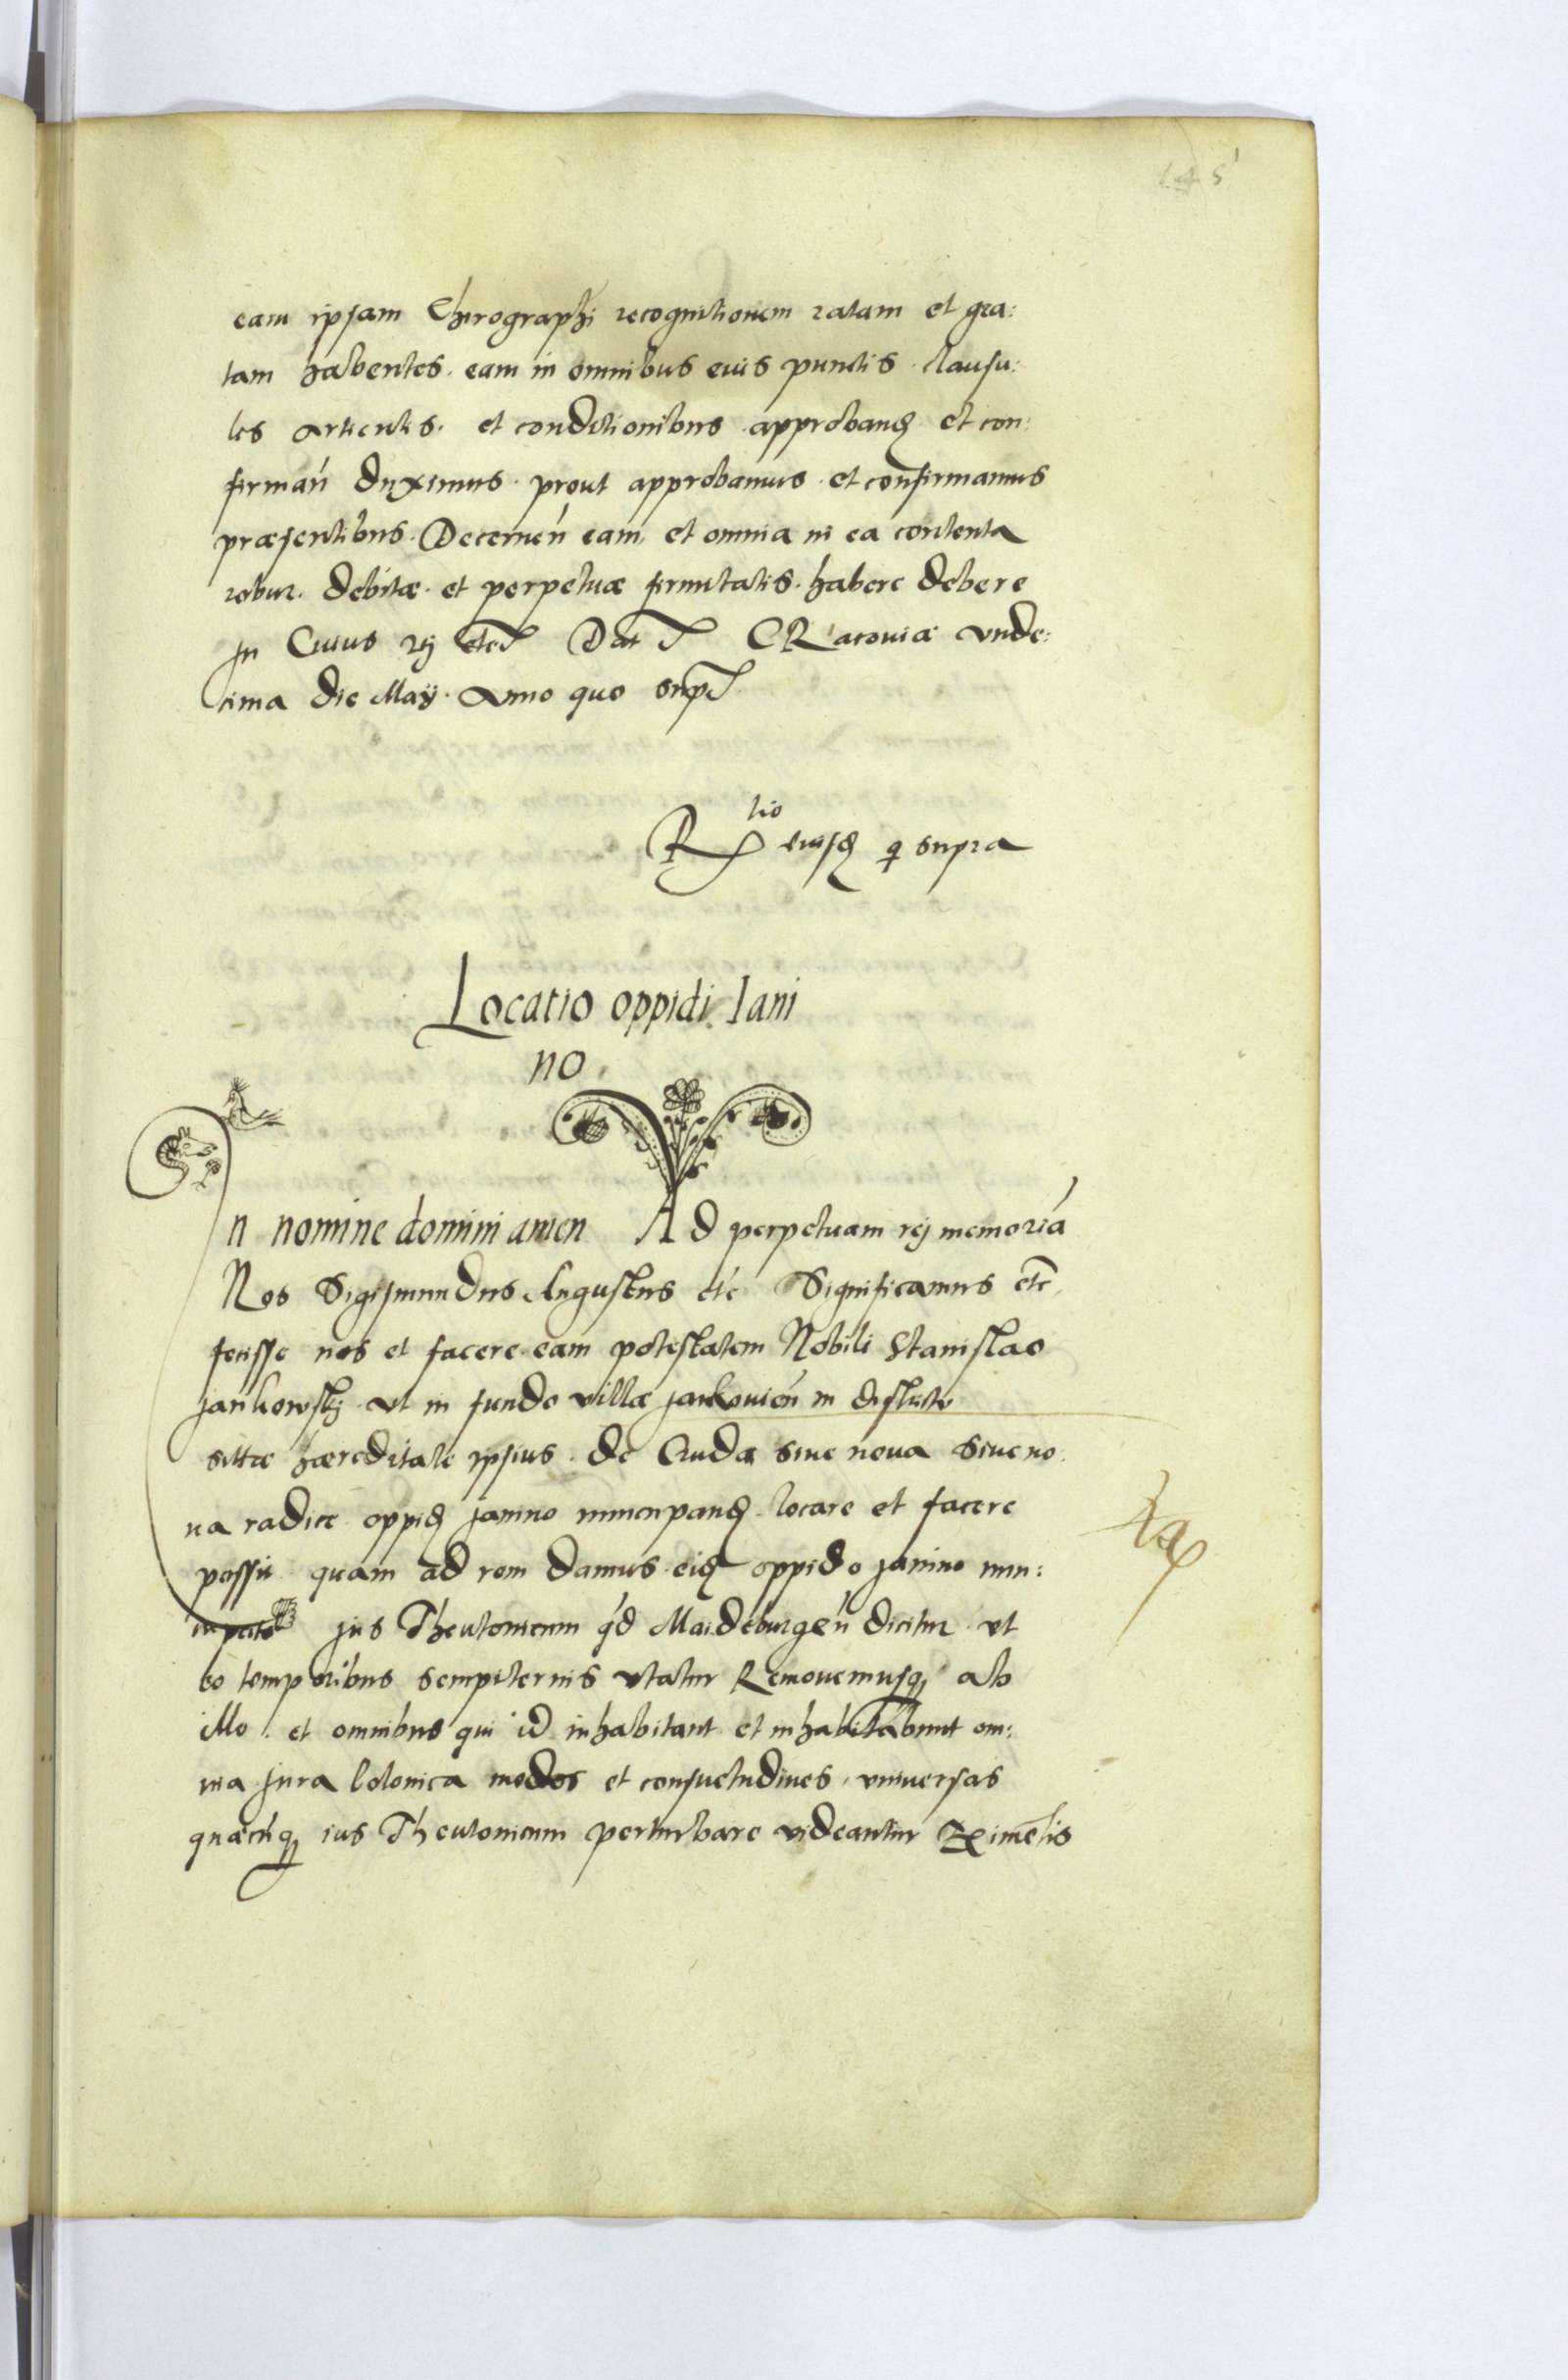 145
eam ipsam Chirographi recognitionem ratam et gra:
tam habentes. eam in omnibus eius punctis. clausu:
les articulis. et conditionibus approband et con:
firman duximus. prout approbamus et confirmamus
præsentibus. Decernen eam, et omnia in ea contenta
robur. debitæ. et perpetuæ firmitatis. habere debere
In Cuius rej etc Dat CRacouiæ vnde:
cima die Maÿ. Anno quo supr
Rtio eiusd q supra
Locatio oppidi Iani
no.
In nomine domini amen Ad perpetuam rej memoriā
Nos Sigismundus Augustus etc Significamus etc
fecisse nos et facere eam potestatem Nobili Stanislao
jankowskj vt in fundo villæ jankouien in districtu
sittæ hæreditate ipsius. de Cruda siue noua siue no:
ua radice oppid janino nuncupand locare et facere
possit quam ad rem damus eid oppido janino nun:
cupato jus Theutonicum qd Maideburgen dicitur vt
eo temporibus sempiternis vtatur Remouemusq ab
illo. et omnibus qui id inhabitant et inhabitabunt om:
nia jura Polonica modos et consuetudines, vniuersas
quæcūq ius Theutonicum perturbare videantur Eximētis